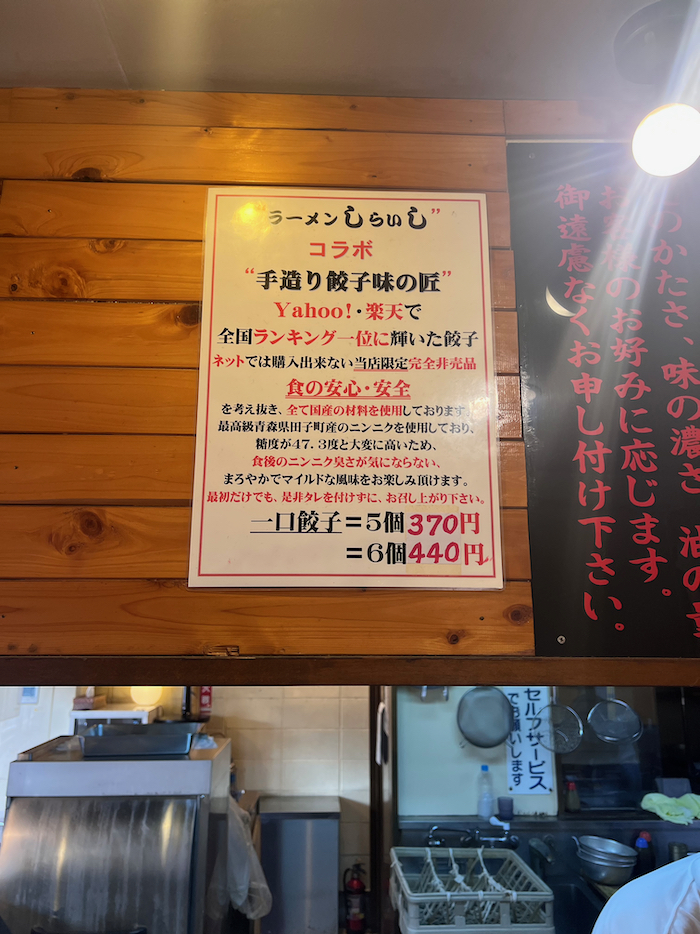 "ラーメンしらいし"
コラボ
"手造り餃子味の匠"
Yahoo!・楽天で
全国ランキング一位に輝いた餃子
ネットでは購入出来ない当店限定完全非売品
食の安心・安全
を考え抜き、全て国産の材料を使用しております。
最高級青森県田子町産のニンニクを使用しており、
糖度が47.3度と大変に高いため、
食後のニンニク臭さが気にならない、
まろやかでマイルドな風味をお楽しみ頂けます。
最初だけでも、是非タレを付けずに、お召し上がり下さい。
一口餃子=5個370円
=6個440円
のかたさ、味の濃さ 油の
のお好みに応じます。
御遠慮なくお申し付け下さい。
セルフサービス
でお願いします。